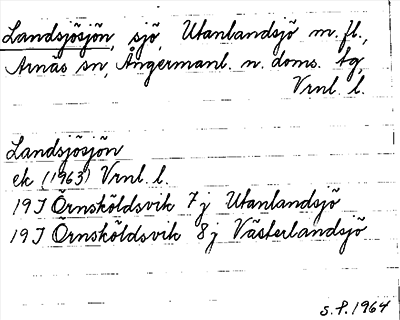 Landsjösjön, sjö, Utanlandsjö m. fl.,
Arnäs sn, Ångermanl. n. doms. tg,
Vrnl. l.
Landsjösjön
ek (1963) Vrnl. l.
19 J Örnsköldsvik 7 j Utanlandsjö
19 J Örnsköldsvik 8 j Västerlandsjö
S. P. 1964